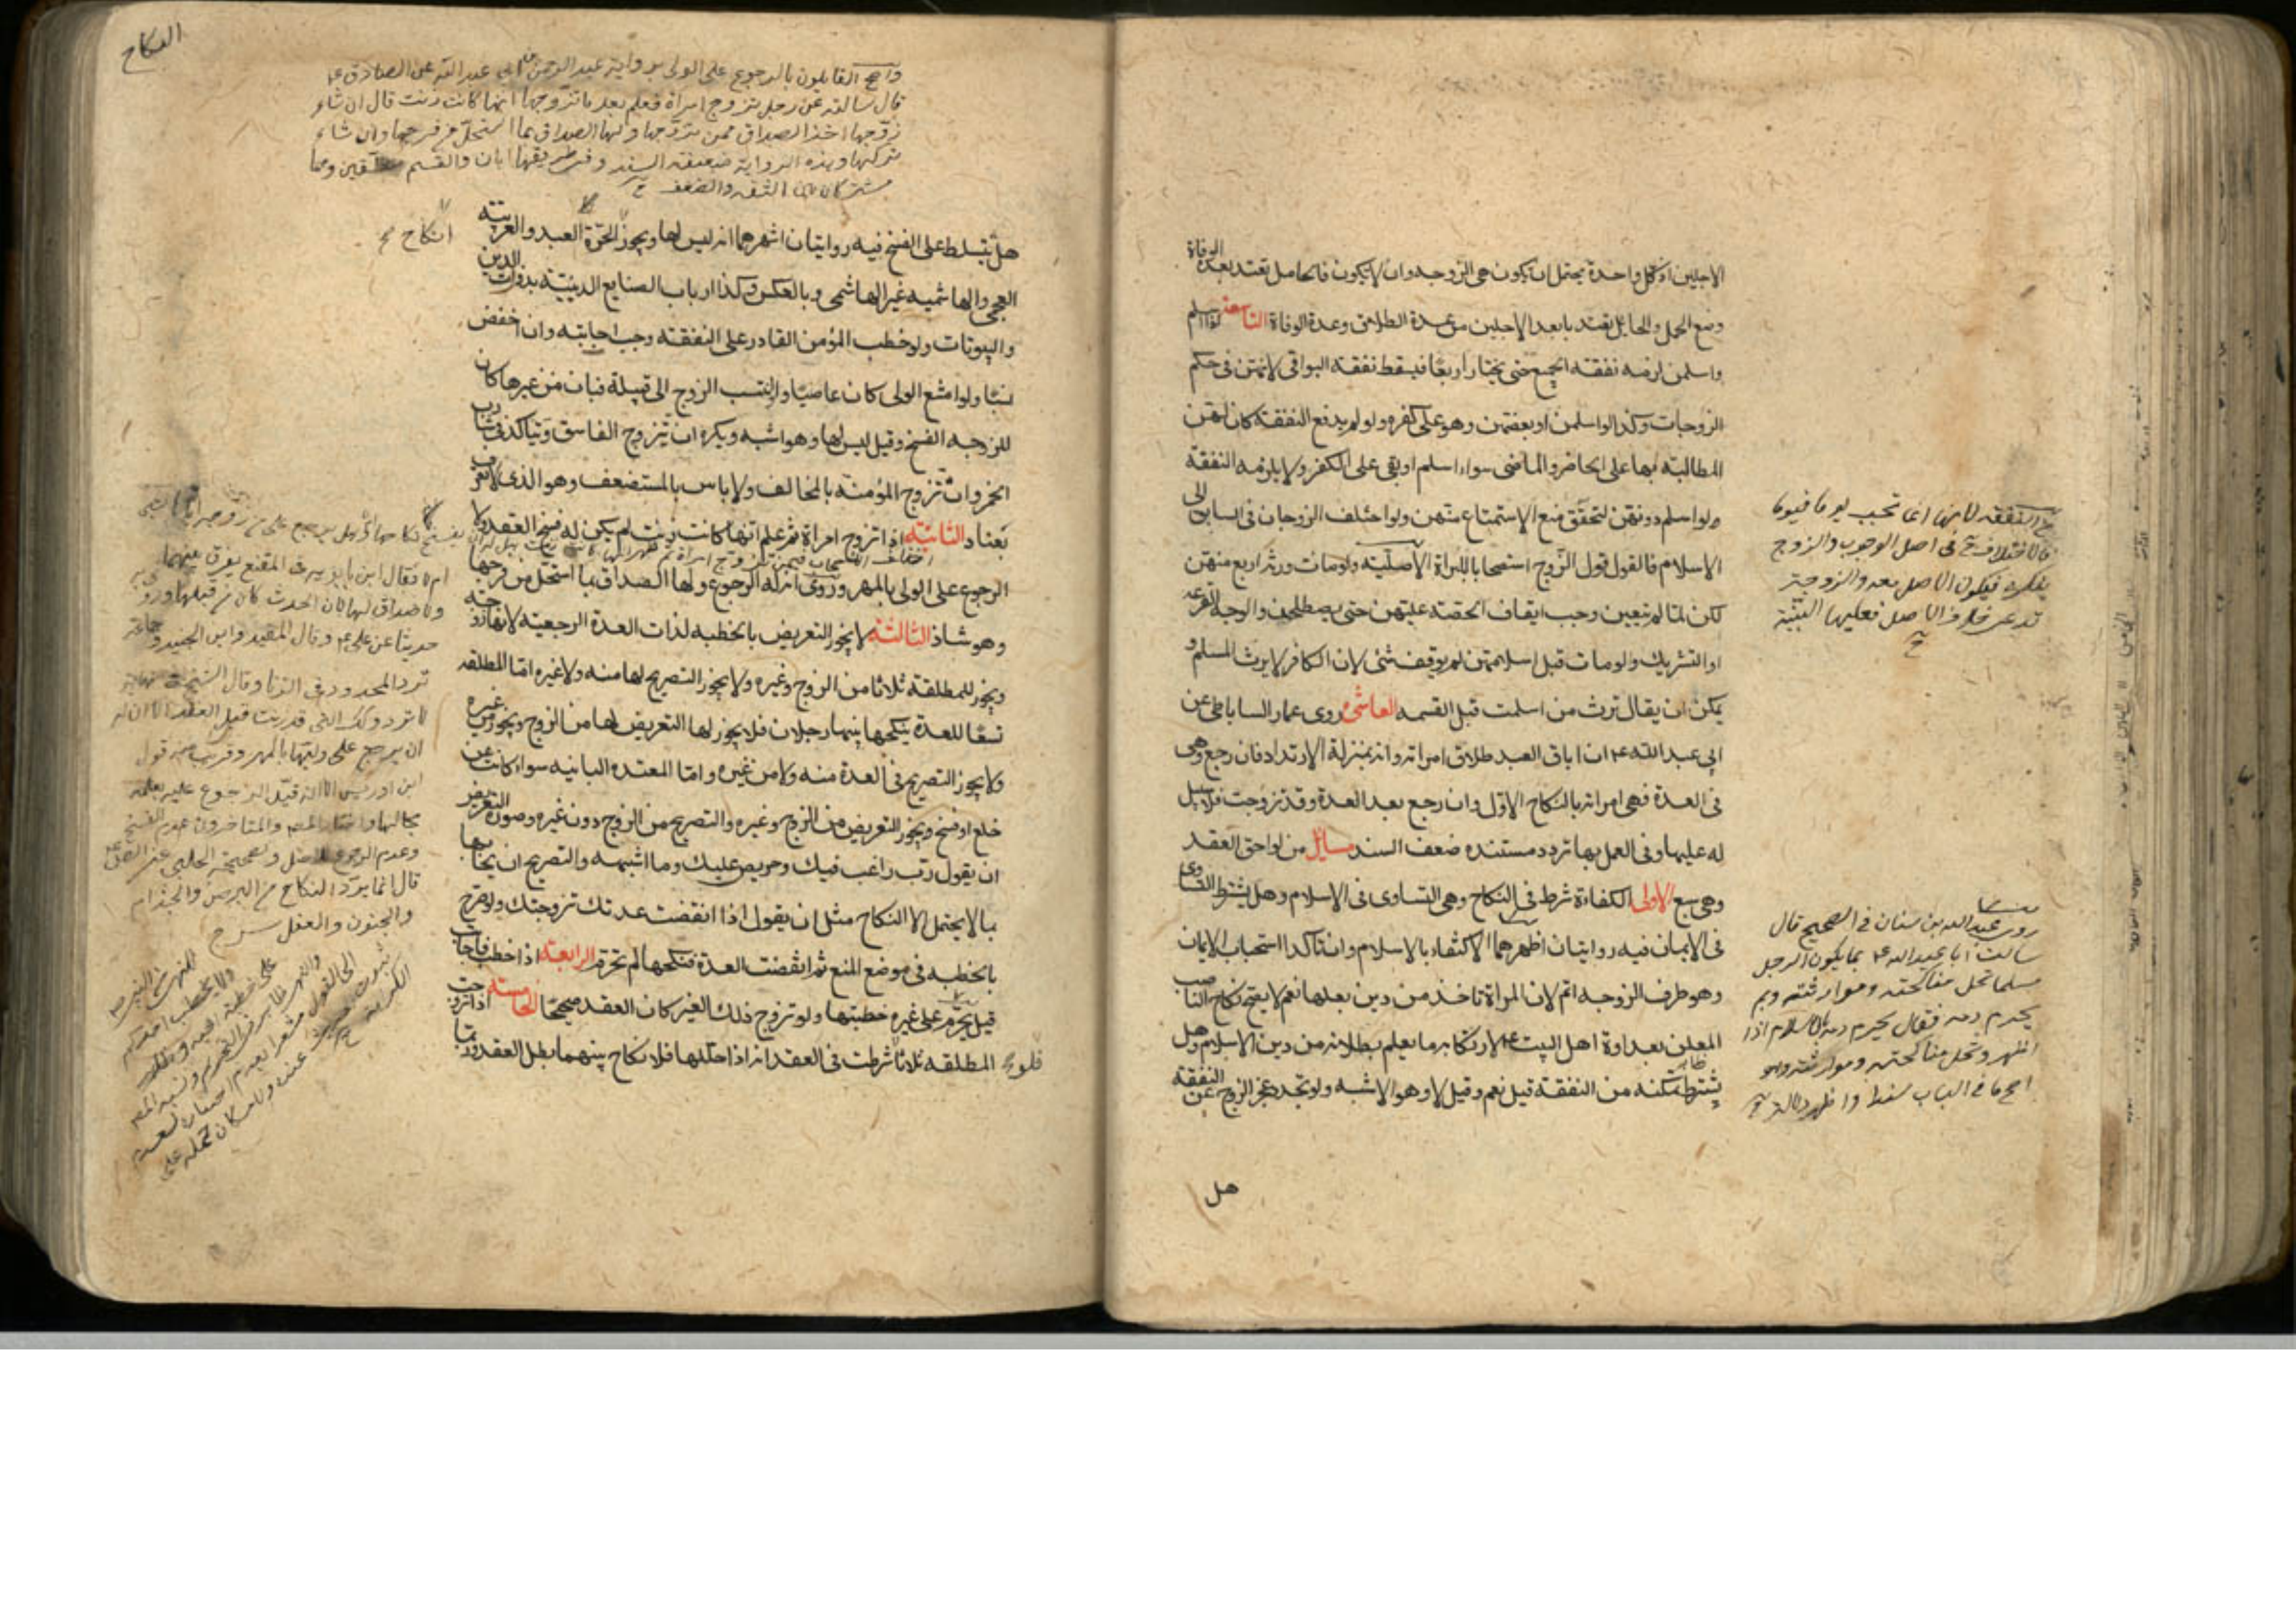 الاجلين اذ كل واحدة يحتمل ان يكون هي الزوجه وان لا يكون فالحامل تعتد بعدة الوفاة
وضع الحمل والحايل يعتد بابعد الاجلين من عدة الطلاق وعدة الوفاة التاسعه لو اسلم
واسلمن لزمه نفقه الجميع حتى يختار اربعا فيسقط نفقه البواقي لانهن في حكم
الزوجات وكذا لو اسلمن او بعضهن وهو على كفره ولو لم يدفع النفقة كان لهن
المطالبة بها على الحاضر والماضي سواء اسلم او بقي على الكفر ولا يلزمه النفقه
ولو اسلم دونهن لتحقق منع الاستمتاع منهن ولو اختلف الزوجان في السابق الى
الاسلام فالقول قول الزوج استصحابا للبراة الاصليه ولو مات ورثه اربع منهن
لكن لما لم يتعين وجب ايقاف الحصه عليهن حتى يصطلحن والوجه القرعه
او التشريك ولو مات قبل اسلامهن لم يوقف شئ لان الكافر لا يرث المسلم و
يمكن ان يقال ترث من اسلمت قبل القسمه العاشره روى عمار الساباطي عن
ابي عبد الله ع ان اباق العبد طلاق امراته وانه بمنزلة الارتداد فان رجع وهي
في العدة فهي امراته بالنكاح الاول وان رجع بعد العدة وقد تزوجت فلا سبيل
له عليها وفي العمل بها تردد مستنده ضعف السند مسايل من لواحق العقد
وهي سبع الاولى الكفاءة شرط في النكاح وهي التساوي في الاسلام وهل يشترط التساوي
في الايمان فيه روايتان اظهرهما الاكتفاء بالاسلام وان تاكدا استحباب الايمان
وهو طرف الزوجه اتم لان المراة تاخذ من دين بعلها نعم لا يصح نكاح الناصب
المعلن بعداوة اهل البيت ع لارتكابه ما يعلم بطلانه من دين الاسلام وهل
يشترط تمكنه من النفقة قيل نعم وقيل لا وهو الاشبه ولو تجدد عجز الزوج عن النفقة
هل
النفقه لانها انما تجب يوما فيوما
فالاختلاف في اصل الوجوب والزوج
ينكره فيكون الاصل معه والزوجة
تدعى خلاف الاصل فعليها البينة
روى عبد الله بن سنان في الصحيح قال
سالت ابا عبد الله ع بما يكون الرجل
مسلما تحل مناكحته وموارثته وبم
يحرم دمه فقال يحرم دمه بالاسلام اذا
اظهر وتحل مناكحته وموارثته وهو
اصح ما في الباب سندا واظهر دلالة
النكاح
واحتج القايلون بالرجوع على الولي برواية عبد الرحمن بن ابي عبد الله عن الصادق ع
قال سالته عن رجل تزوج امراة فعلم بعد ما تزوجها انها كانت زنت قال ان شاء
زوجها اخذ الصداق ممن زوجها ولها الصداق بما استحل من فرجها وان شاء
تركها وهذه الرواية ضعيفه السند وفي طريقها ابان والقسم وهما
مشتركان بين الثقه والضعف
هل يتسلط على الفسخ فيه روايتان اشهرهما انه ليس لها ويجوز انكاح الحرة العبد والعربيته
العجمي والهاشميه غير الهاشمي وبالعكس وكذا ارباب الصنايع الدينيه بذوات الدين
والبيوتات ولو خطب المؤمن القادر على النفقه وجب اجابته وان اخفض
نسبا ولو امتنع الولي كان عاصيا ولو انتسب الزوج الى قبيلة فبان من غيرها كان
للزوجه الفسخ وقيل ليس لها وهو اشبه ويكره ان تزوج الفاسق وتتاكد في شارب
الخمر وان تزوج المؤمنة بالمخالف ولا باس بالمستضعف وهو الذي لا يعرف
بعناد الثانيه اذا تزوج امراة ثم علم انها كانت زنت لم يكن له فسخ العقد ولا
الرجوع على الولي بالمهر وروى ان له الرجوع ولها الصداق بما استحل من فرجها
وهو شاذ الثالثة لا يجوز التعريض بالخطبه لذات العدة الرجعيه لانها زوجته
ويجوز للمطلقة ثلاثا من الزوج وغيره ولا يجوز التصريح لها منه ولا غيره اما المطلقه
تسعا للعدة ينكحها بينها رجلان فلا يجوز لها التعريض لها من الزوج ويجوز من غيره
ولا يجوز التصريح في العدة منه ولا من غيره واما المعتده الباينه سواء كانت عن
خلع او فسخ ويجوز التعريض من الزوج وغيره والتصريح من الزوج دون غيره وصورة التعريض
ان يقول رب راغب فيك وحريص عليك وما اشبهه والتصريح ان يخاطبها
بما لا يحتمل الا النكاح مثل ان يقول اذا انقضت عدتك تزوجتك ولو صرح
بالخطبه في موضع المنع ثم انقضت العدة فنكحها لم تحرم الرابعة اذا خطب فاجابت
قيل يحرم على غيره خطبتها ولو تزوج ذلك الغير كان العقد صحيحا الخامسه اذا تزوجت
المطلقه ثلاثا فلو شرطت في العقد انه اذا حللها فلا نكاح بينهما بطل العقد وربما
انكاح صح
ام لا فقال ابن بابويه في المقنع يفرق بينهما
ولا صداق لها لان الحدث كان من قبلها وروى
حديثا عن علي ع وقال المفيد وابن الجنيد وجماعة
ترد المحدودة في الزنا وقال الشيخ في نهايته
لا ترد وكذلك التي قد زنت قبل العقد الا ان له
ان يرجع على وليها بالمهر وقريب منه قول
ابن ادريس الا انه قيد الرجوع عليه بعلمه
بحالها واختار المصنف والمتاخرون عدم الفسخ
وعدم الرجوع للاصل ولصحيحة الحلبي عن الصادق ع
قال انما يرد النكاح من البرص والجذام
والجنون والعفل